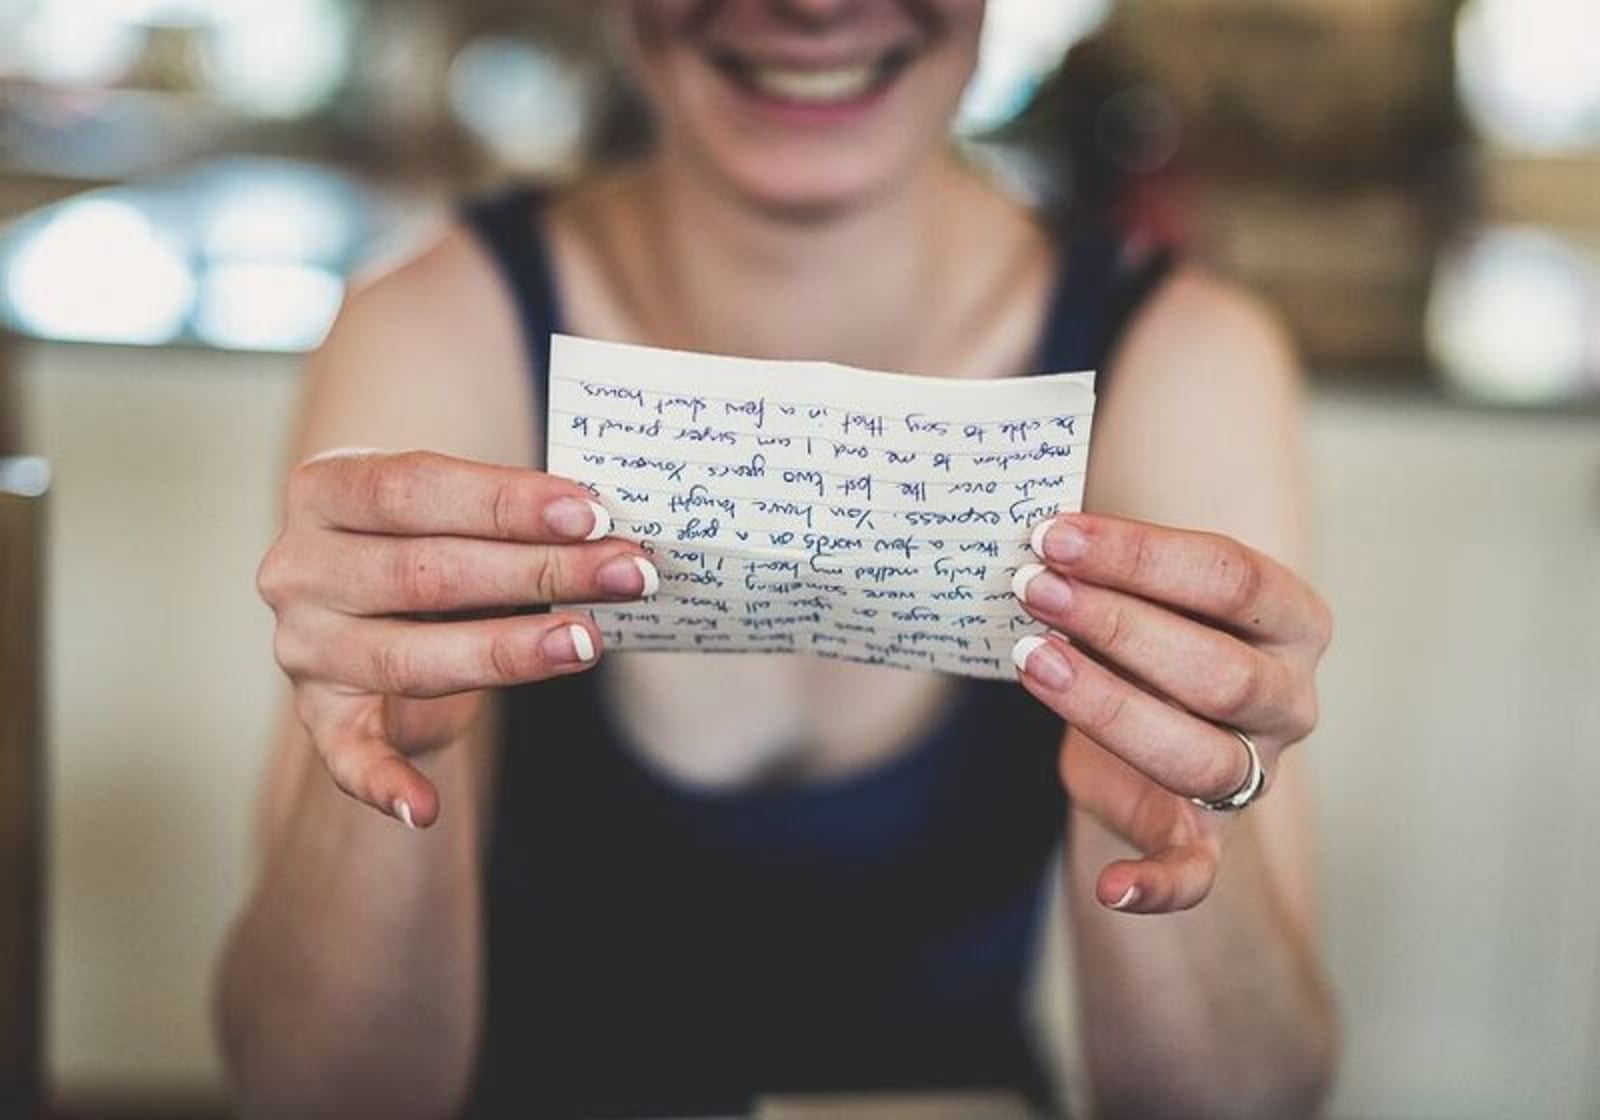 laughs and tears and
I thought possible. Ever since
set eyes on you all those
you were something special
truly melted my heart. I love
then a few words on a page can
truly express. You have taught me so
much over the last two years. You are an
inspiration to me and I am super proud to
be able to say that in a few short hours,